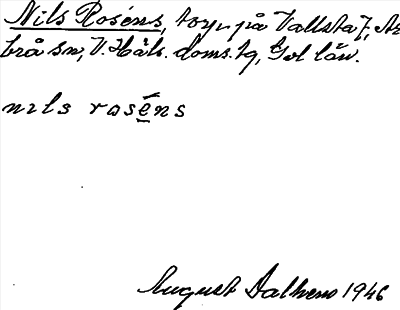 Nils Roséns, torp på Vallsta f, Ar
brå sn, V. Häls. doms. tg, Gvl län.
nıls rosḗns
August Dalhem 1946